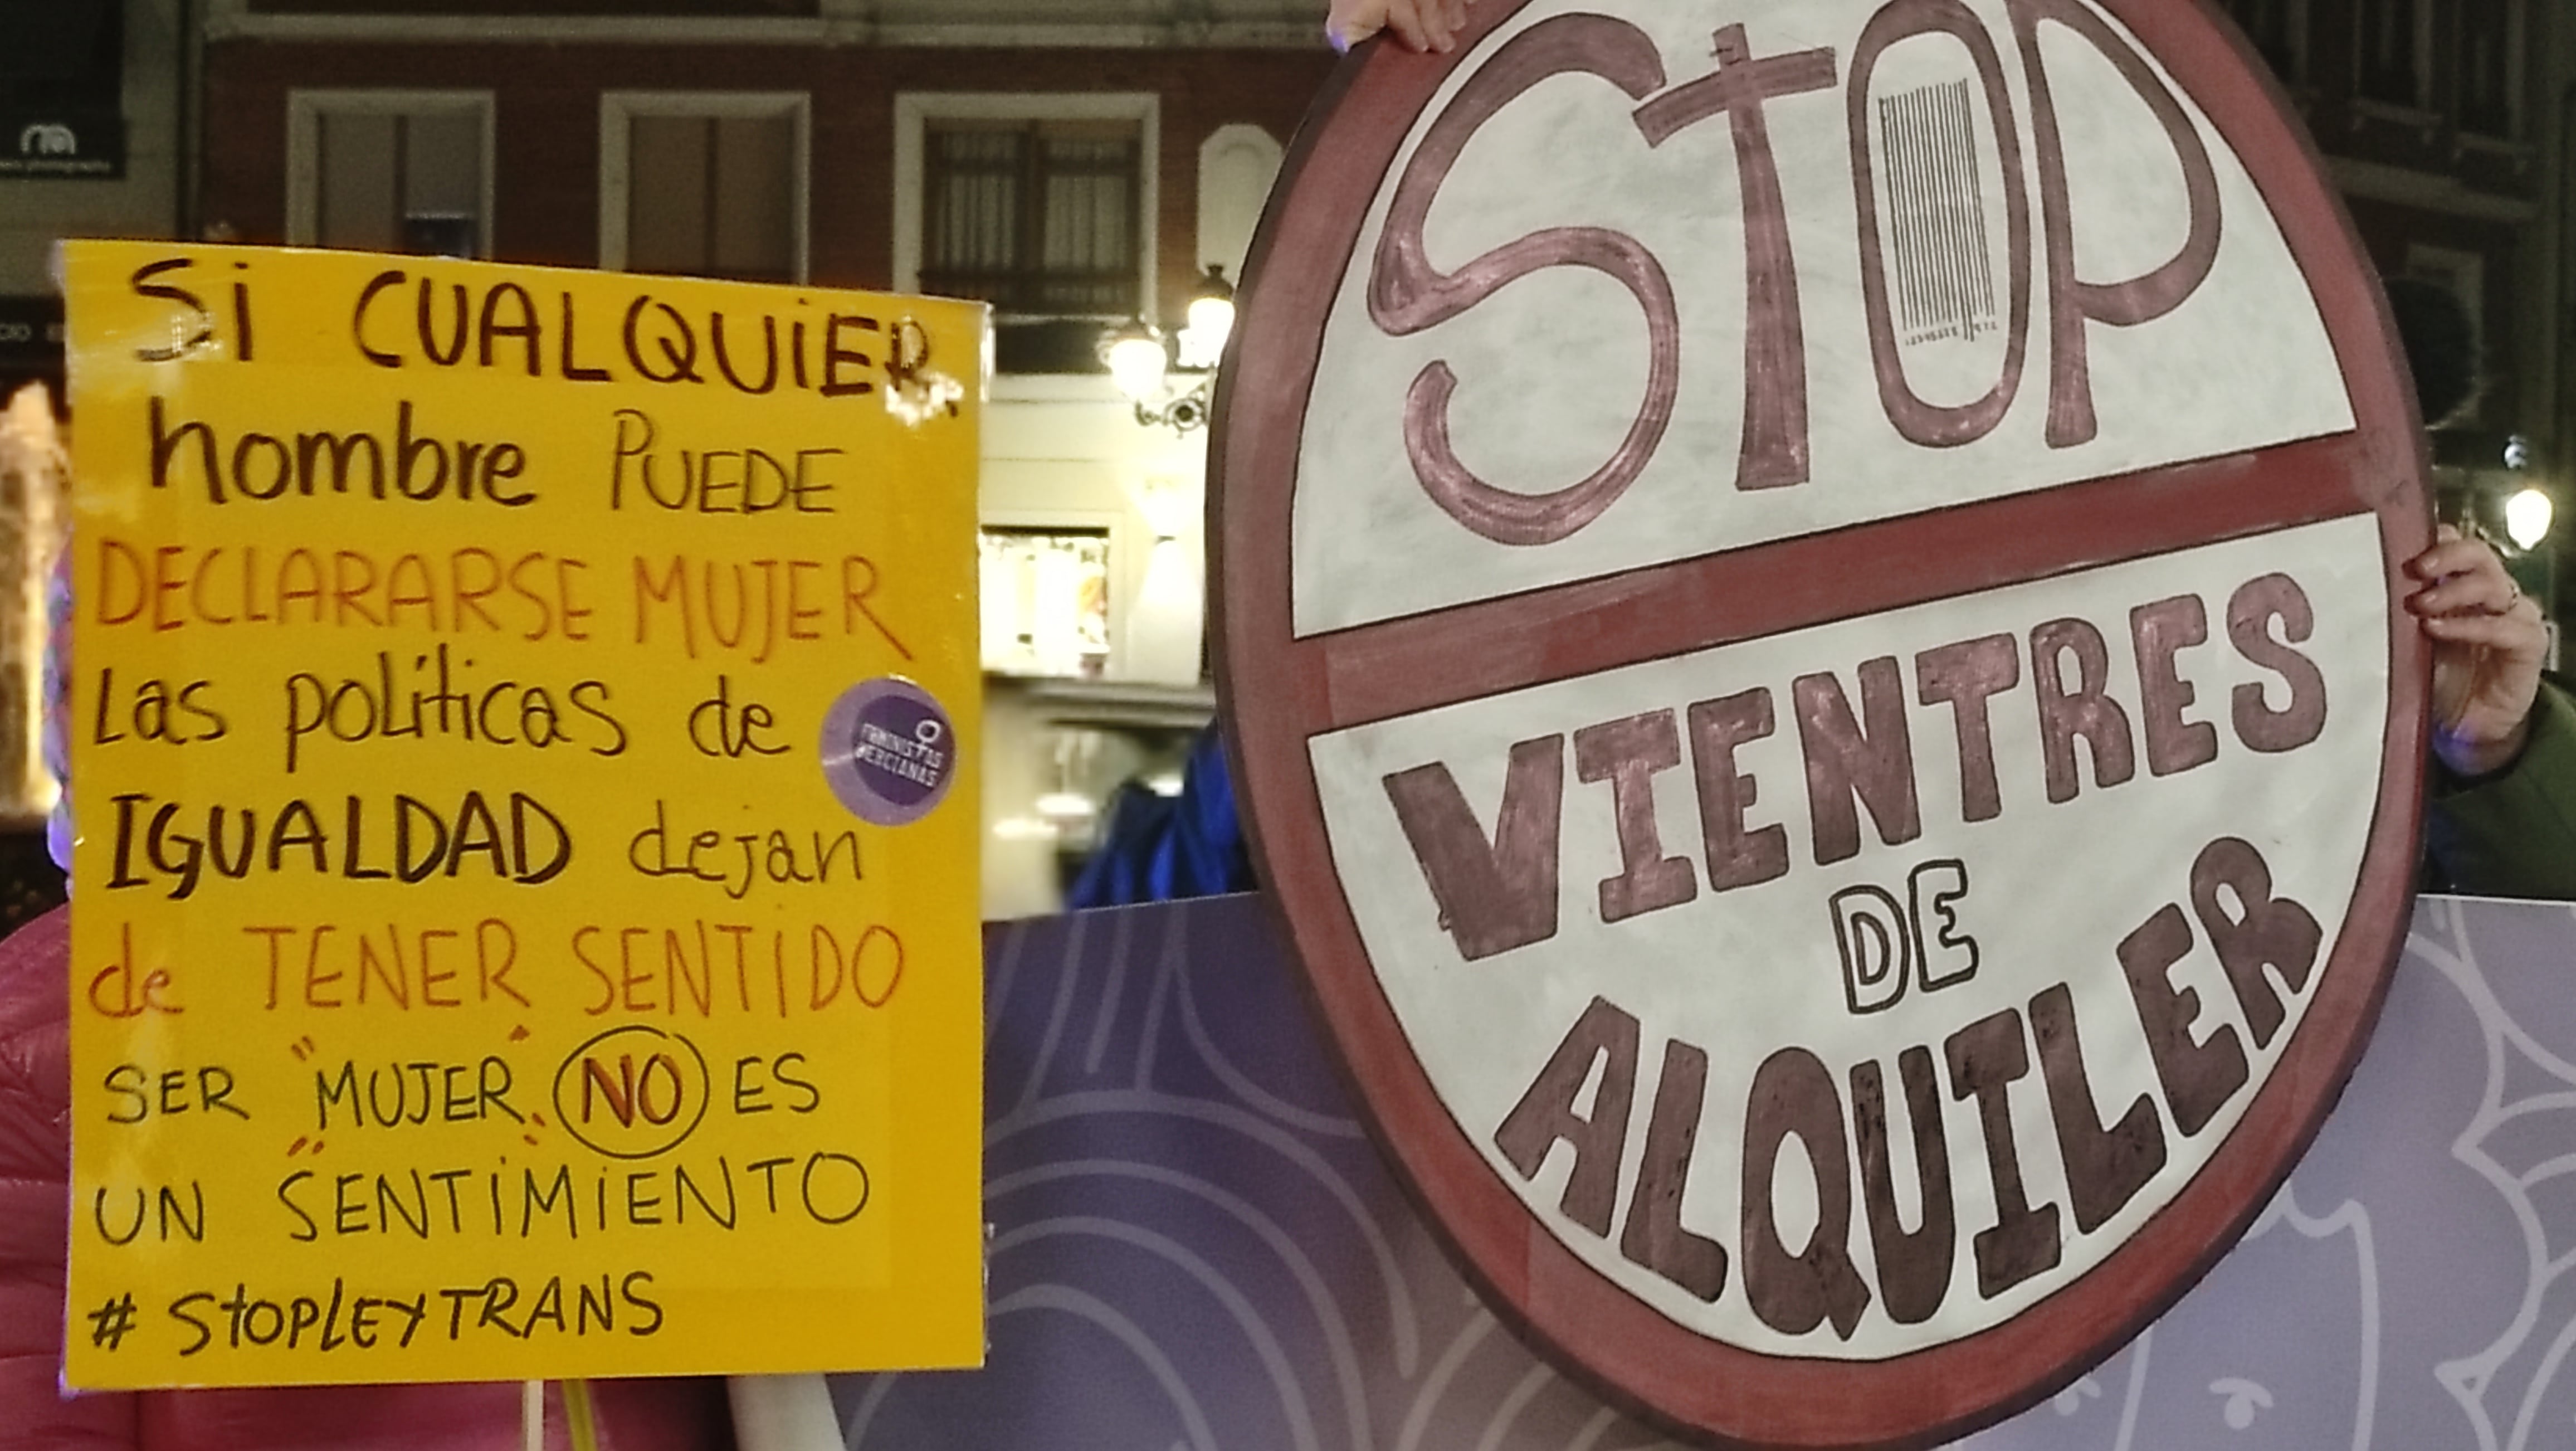 Si CUALQUiER
hombre PUEDE
DECLARARSE MUJER
Las políticas de
IGUALDAD dejan
de TENER SENTiDO
SER "MUJER" NO ES
UN "SENTiMiENTO"
#STOPLEYTRANS
FEMINISTAS
MURCIANAS
STOP
VIENTRES
DE
ALQUILER